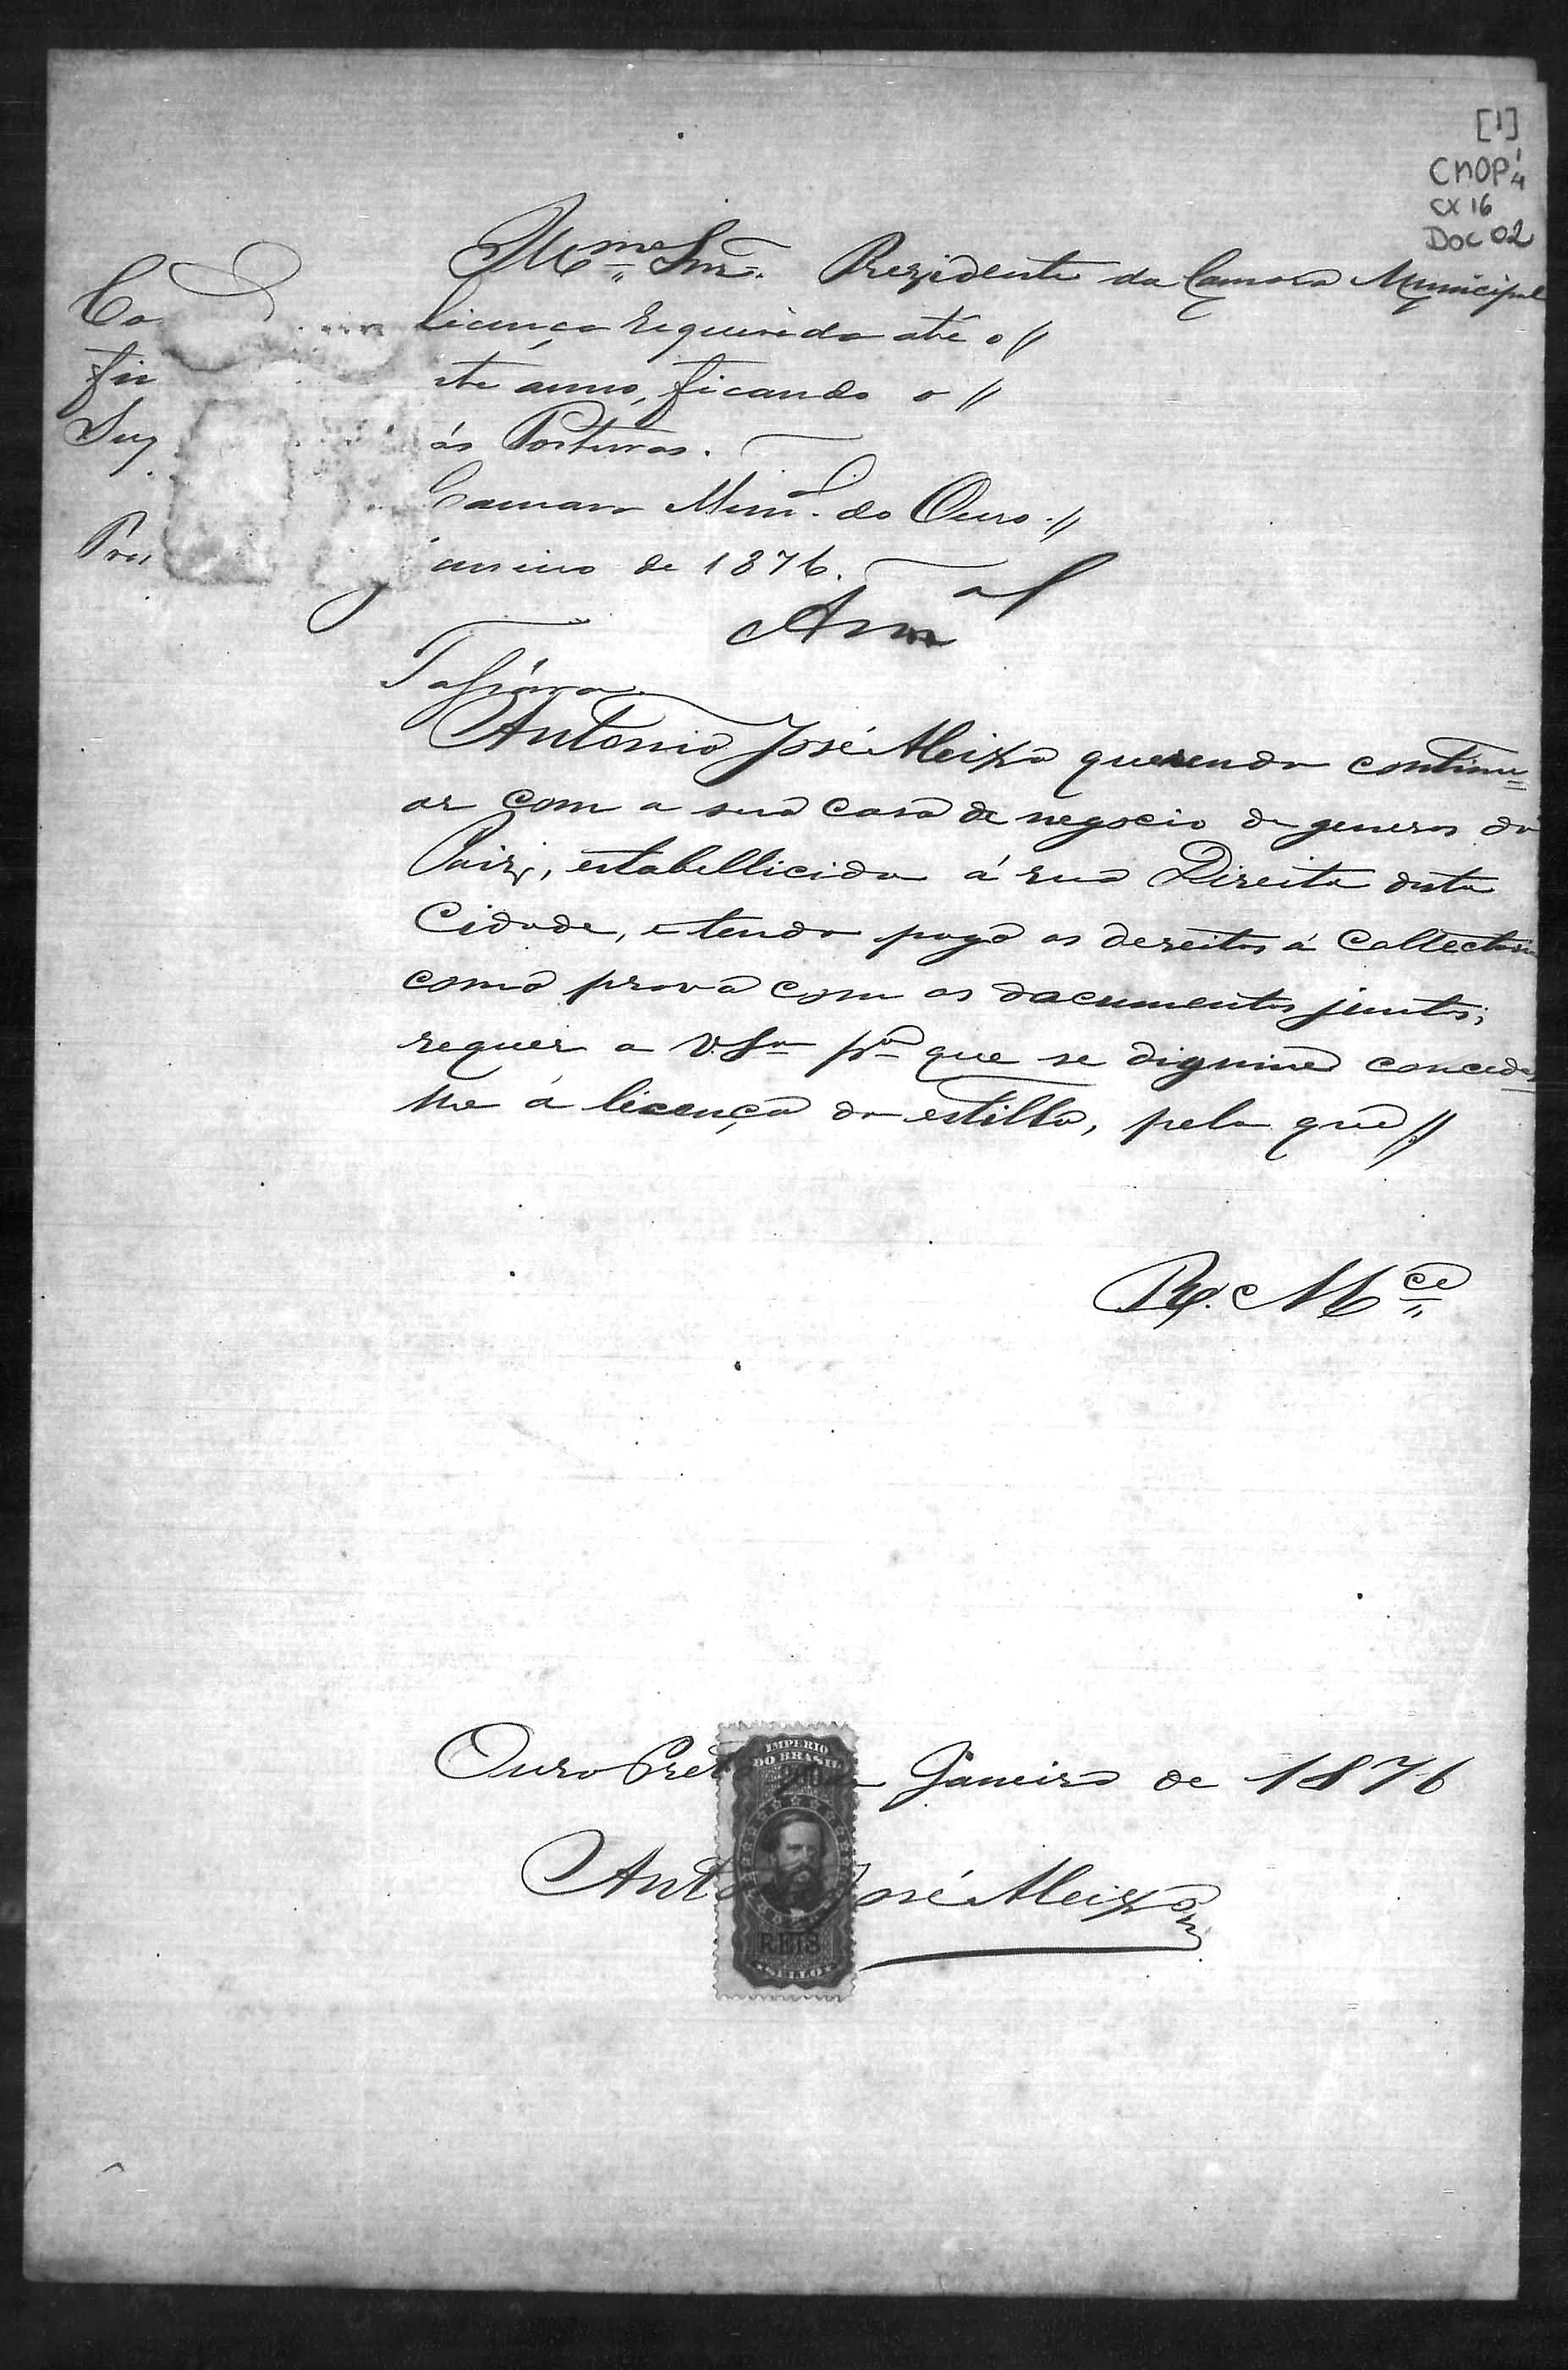 [1]
CMOP 1/4
CX 16
DOC 02
Illmo Snr. Prezidente da Camara Municipal
Co licença requerida até o //
fin ste anno, ficando o //
Sug ás Posturas.
Camara Munal. do Ouro //
Pre aneiro de 1876.
Antonio José Aleixo querendo continu=
ar com a sua casa de negocio de generos do
Paiz, estabellicida á rua Direita desta
Cidade, e tendo pago os dereitos á Collectoria
como prova com os documentos juntos;
requer a V.Sa pa que se dignine conceder
lhe a licença do estillo, pelo que //
R. Mce
Ouro Preto de Janeiro de 1876
Antonio José Aleixo
IMPERIO
DO BRASIL
200
REIS
SELLO